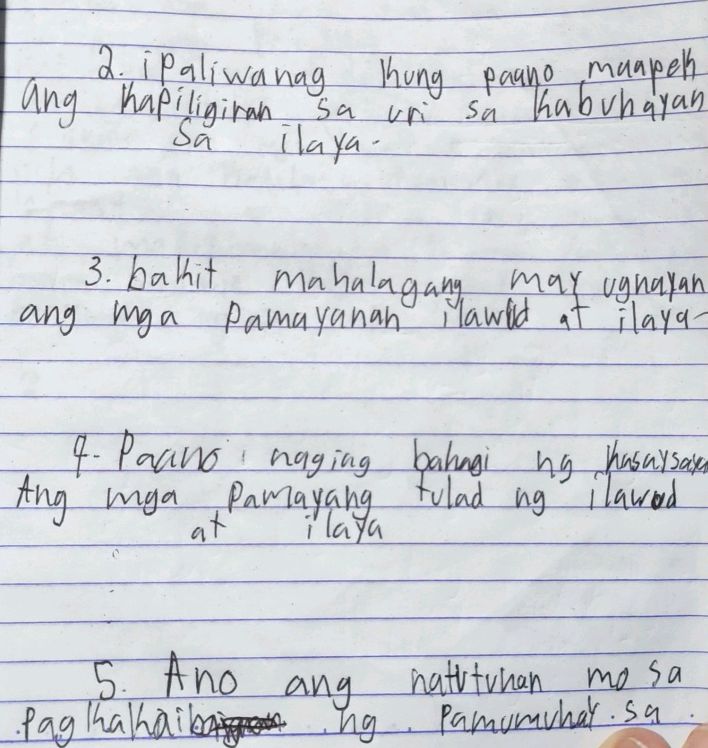 2. ipaliwanag kung paano maapek
ang kapiligiran sa uri sa kabuhayan
sa ilaya.
3. bakit mahalagang may ugnayan
ang mga pamayanan ilawod at ilaya-
4. Paano naging bahagi ng kasaysaya
Ang mga pamayang tulad ng ilawod
at ilaya
5. Ano ang natutuhan mo sa
pagkakaiba ng pamumuhay sa